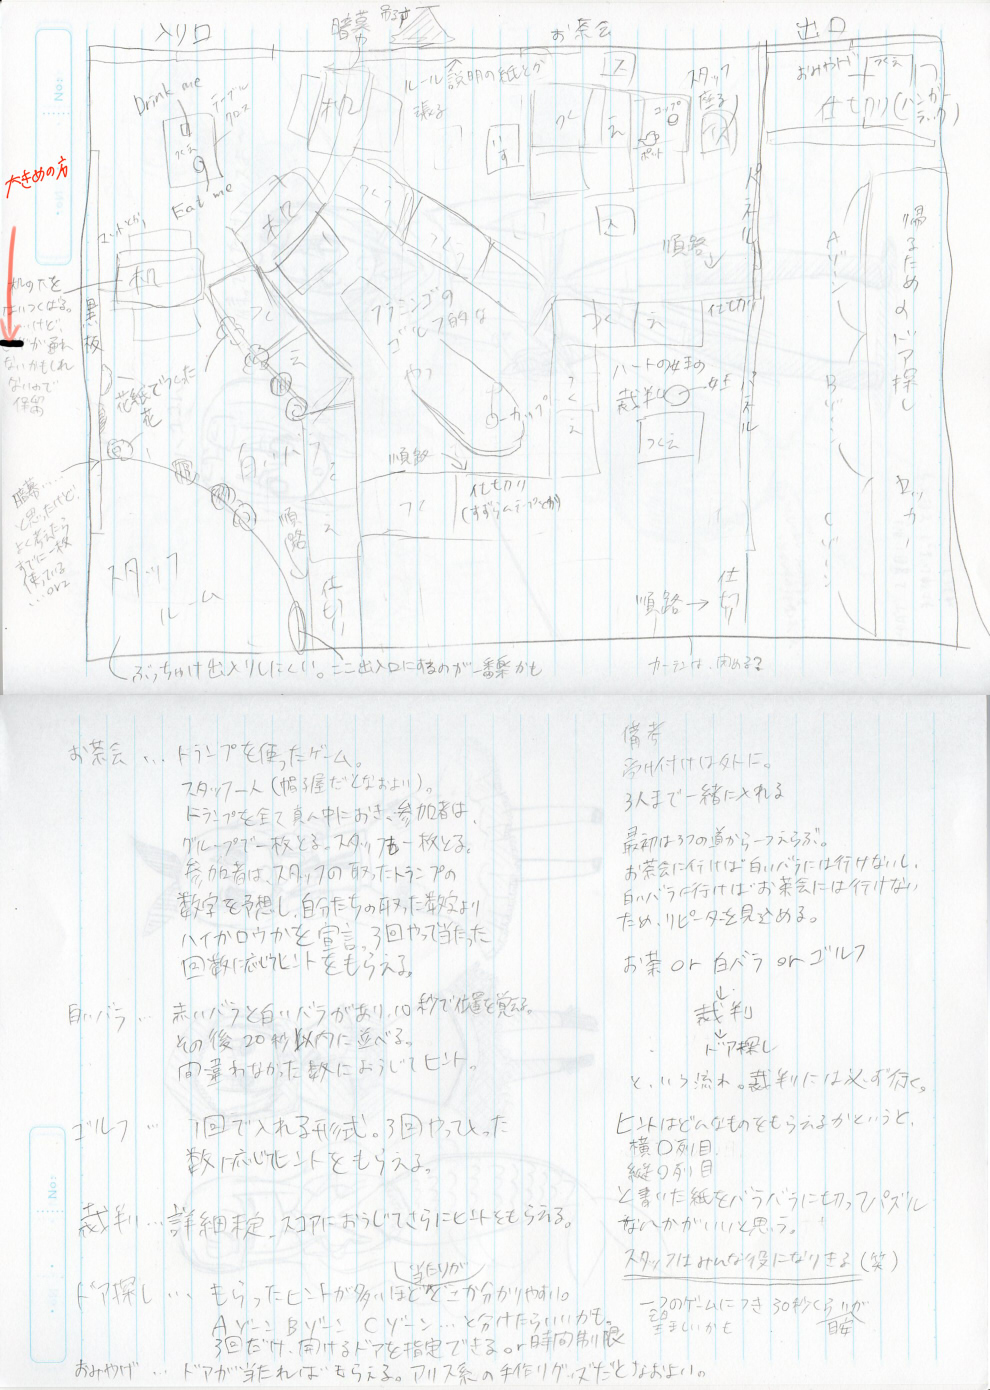 入り口
暗幕
吊るす
お茶会
出口
Drink me
テーブル
クロス
つくえ
Eat me
机
ルール説明の紙とか
張る
ス
スタッフ
座る
おみやげ
つくえ
仕切り(ハンガー
ラック)
いす
つくえ
コップ
ポット
イス
ス
大きめの方
No:
机
机
つくえ
つくえ
フラミンゴの
ゴルフ的な
やつ
カップ
パネル
順路
Aゾーン
Bゾーン
Cゾーン
帰るためのドア探し
ロッカー
机の下を
保留
黒板
花紙でつくった
花
つくえ
つくえ
仕切り
ハートの女王の
裁判
女王
つくえ
パネル
白いバラ
順路
順路
仕切り
(すずらんテープとか)
つくえ
暗幕……
と思ったけど、
よく考えたら
すでに一枚
使っている
…orz
スタッフ
ルーム
仕切り
順路→
仕切り
ぶっちゃけ出入りしにくい。ここ出入口にするのが一番楽かも
カーテンは、閉める?
お茶会… トランプを使ったゲーム。
スタッフ一人(帽子屋だとなおよい)。
トランプを全て真ん中におき、参加者は、
グループで一枚とる。スタッフも一枚とる。
参加者は、スタッフの取ったトランプの
数字を予想し、自分たちの取った数字より
ハイかロウかを宣言。3回やって当たった
回数に応じてヒントをもらえる。
白いバラ… 赤いバラと白いバラがあり、10秒で位置を覚える。
その後20秒以内に並べる。
間違わなかった数におうじてヒント。
ゴルフ… 1回で入れる形式。3回やって入った
数に応じてヒントをもらえる。
裁判…詳細未定。スコアにおうじてさらにヒントをもらえる。
当たりが
ドア探し… もらったヒントが多いほどどこか分かりやすい。
Aゾーン Bゾーン Cゾーン…と分けたらいいかも。
3回だけ、開けるドアを指定できる。or 時間制限
おみやげ… ドアが当たればもらえる。アリス系の手作りグッズだとなおよい。
備考
受け付けは外に。
3人まで一緒に入れる
最初は3つの道から一つえらぶ。
お茶会に行けば白いバラには行けないし、
白いバラに行けばお茶会には行けない
ため、リピーターを見込める。
お茶 or 白バラ or ゴルフ
↓
裁判
↓
ドア探し
という流れ。裁判には必ず行く。
ヒントはどんなものをもらえるかというと、
横〇列目
縦〇列目
と書いた紙をバラバラに切ってパズル
なんかがいいと思う。
スタッフはみんな役になりきる(笑)
一つのゲームにつき30秒くらいが
望ましいかも
目安
No: